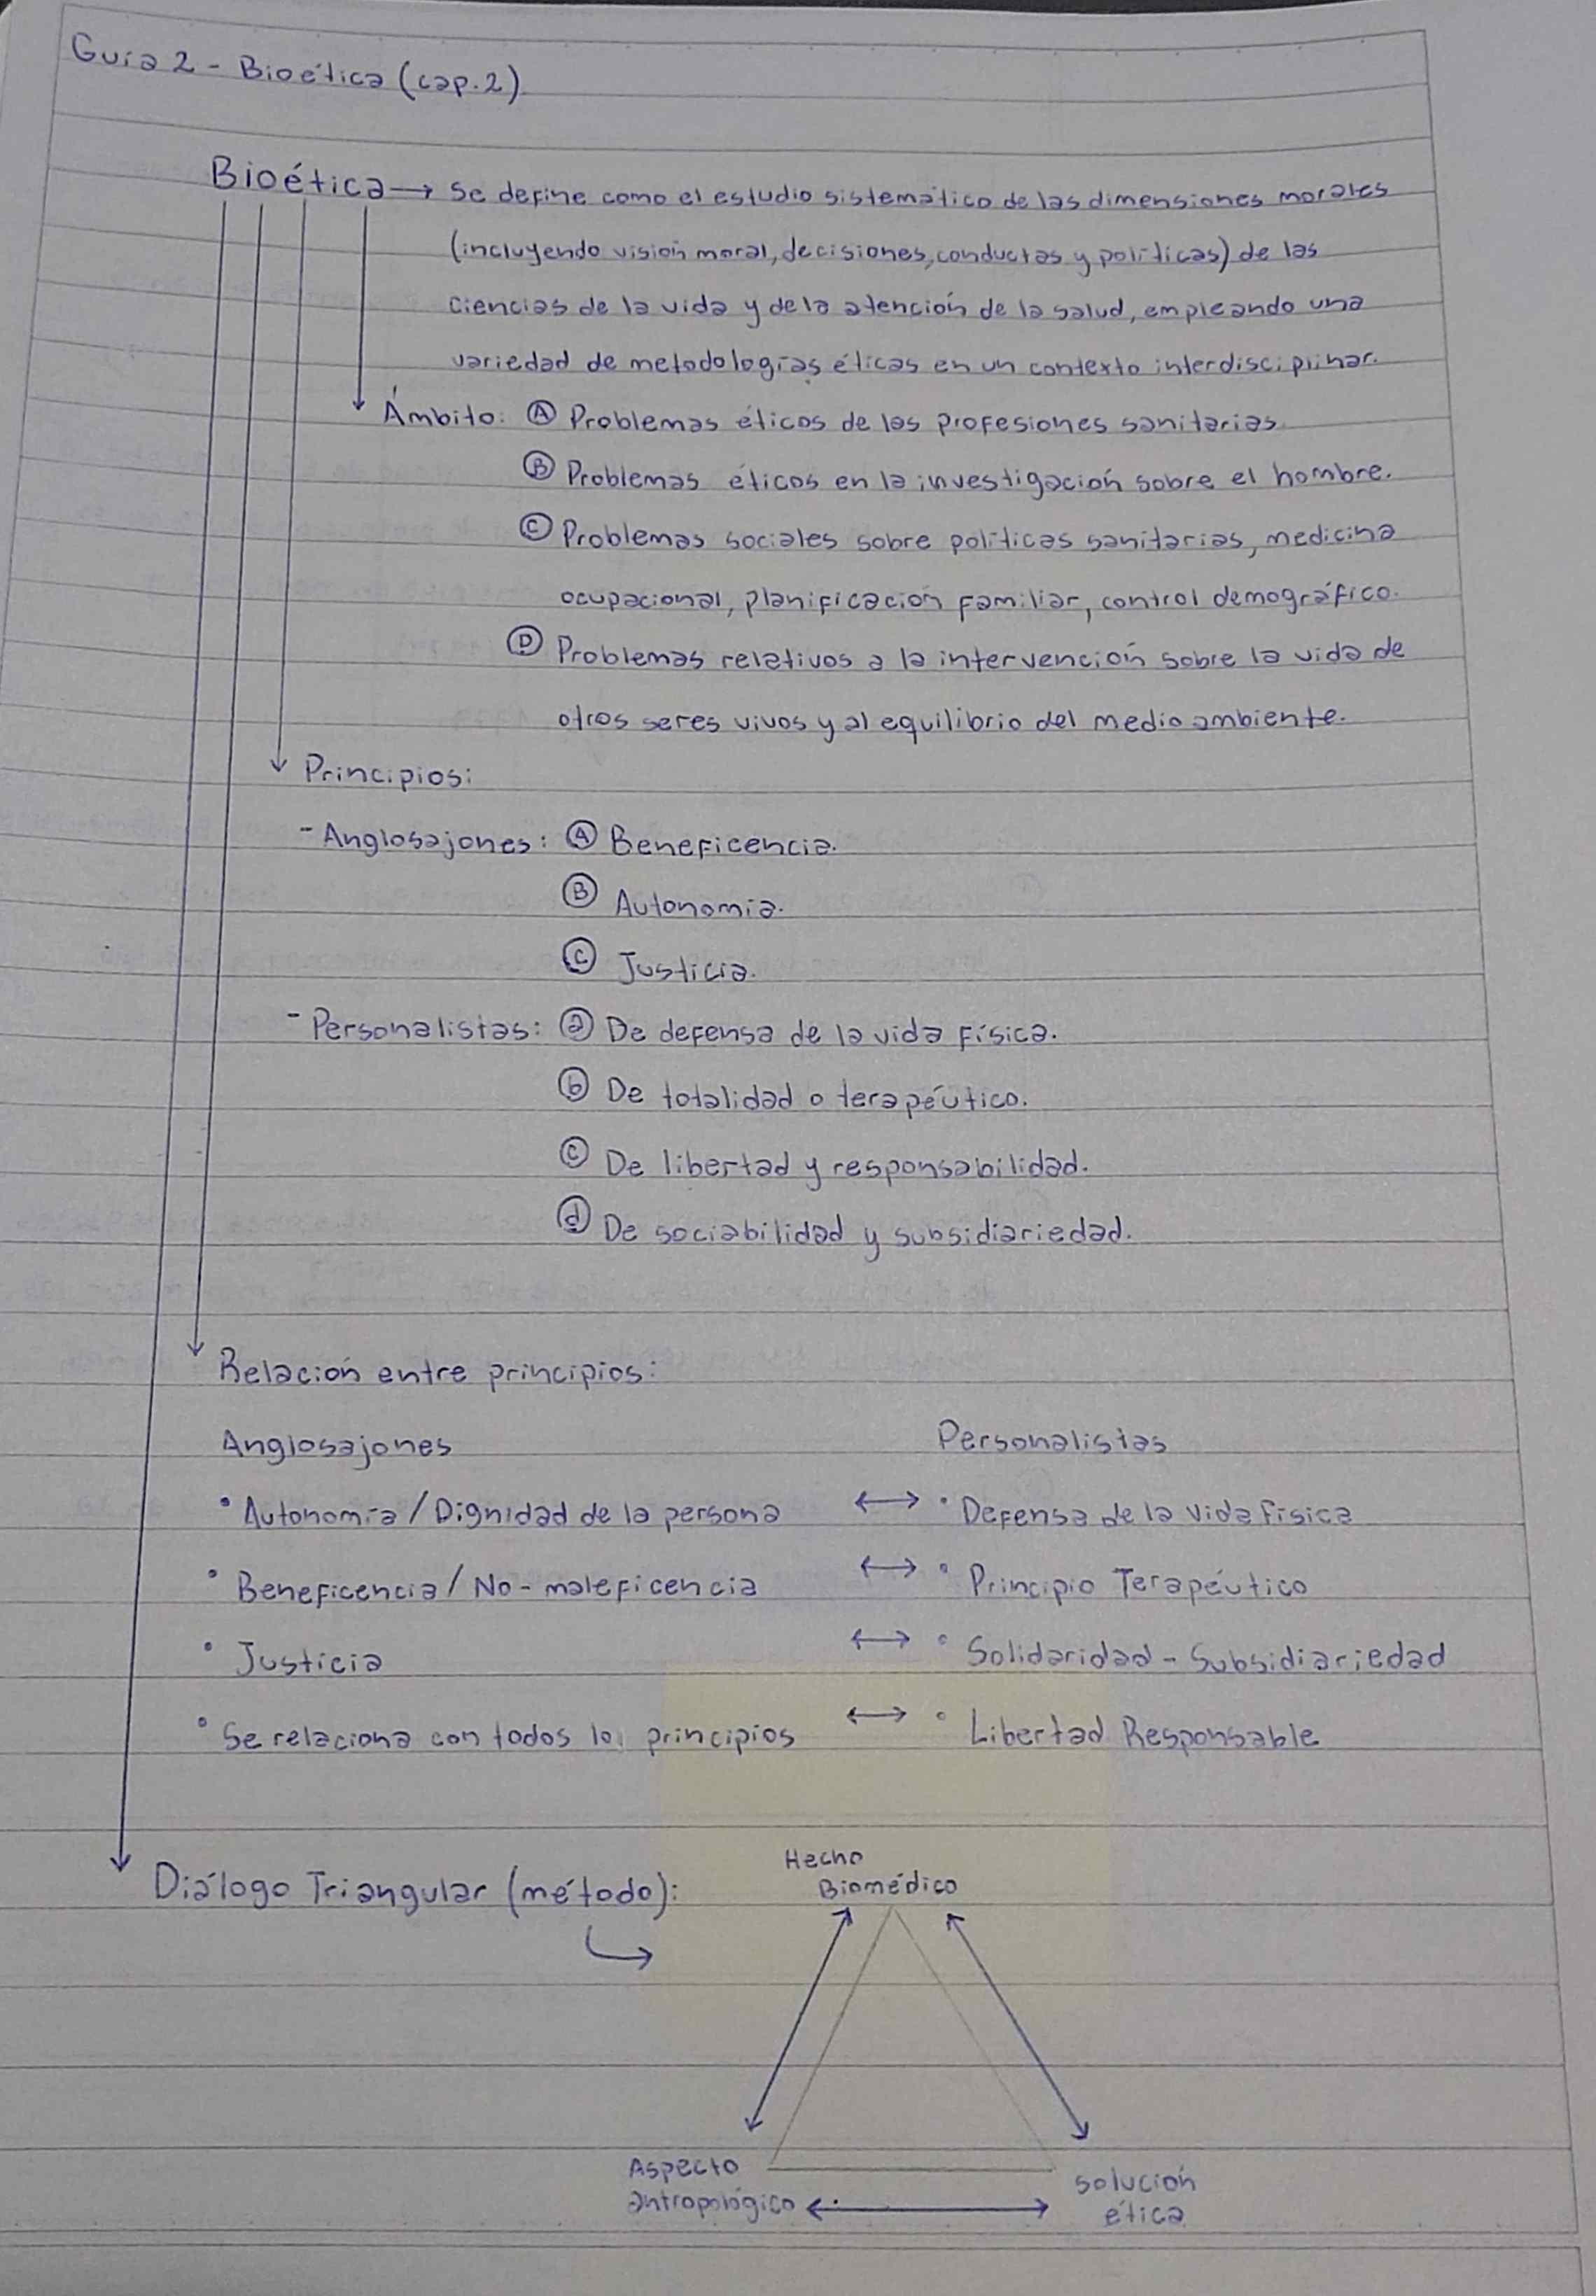 Guía 2 - Bioética (cap. 2)
Bioética → Se define como el estudio sistemático de las dimensiones morales
(incluyendo visión moral, decisiones, conductas y políticas) de las
ciencias de la vida y de la atención de la salud, empleando una
variedad de metodologías éticas en un contexto interdisciplinar.
Ámbito: Ⓐ Problemas éticos de las profesiones sanitarias.
Ⓑ Problemas éticos en la investigación sobre el hombre.
Ⓒ Problemas sociales sobre políticas sanitarias, medicina
ocupacional, planificación familiar, control demográfico.
Ⓓ Problemas relativos a la intervención sobre la vida de
otros seres vivos y al equilibrio del medio ambiente.
Principios:
- Anglosajones: Ⓐ Beneficencia.
Ⓑ Autonomía.
Ⓒ Justicia.
- Personalistas: ⓐ De defensa de la vida física.
ⓑ De totalidad o terapéutico.
ⓒ De libertad y responsabilidad.
ⓓ De sociabilidad y subsidiariedad.
Relación entre principios:
Anglosajones Personalistas
• Autonomía / Dignidad de la persona ↔ • Defensa de la vida física
• Beneficencia / No-maleficencia ↔ • Principio Terapéutico
• Justicia ↔ • Solidaridad - Subsidiariedad
• Se relaciona con todos los principios ↔ • Libertad Responsable
Diálogo Triangular (método):
Hecho
Biomédico
Aspecto
antropológico
solución
ética